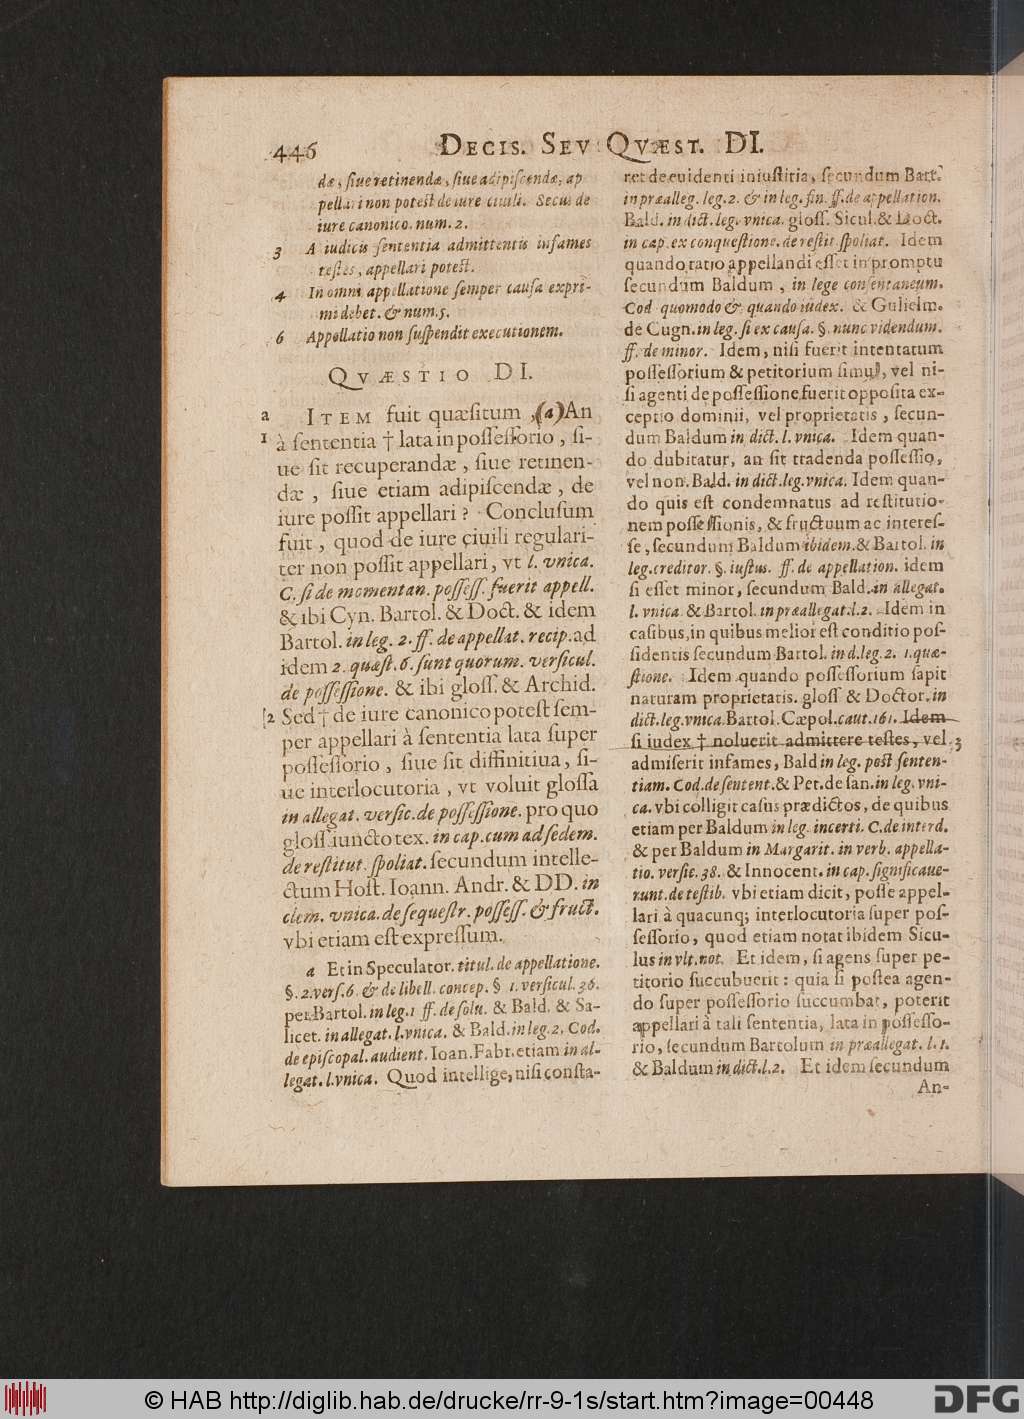 446 DECIS. SEV QVÆST. DI.
dæ, siue retinendæ, siue adipiscendæ, ap
pellari non potest de iure ciuili. Secus de
iure canonico. num. 2.
3 A iudicis sententia admittentis infames
testes, appellari potest.
4 In omni appellatione semper causa expri-
mi debet. & num. 5.
6 Appellatio non suspendit executionem.
QVÆSTIO DI.
a ITEM fuit quæsitum, (a) An
1 à sententia † lata in possessorio, si-
ue sit recuperandæ, siue retinen-
dæ, siue etiam adipiscendæ, de
iure possit appellari? Conclusum
fuit, quod de iure ciuili regulari-
ter non possit appellari, vt l. vnica.
C. si de momentan. possess. fuerit appell.
& ibi Cyn. Bartol. & Doct. & idem
Bartol. in leg. 2. ff. de appellat. recip. ad
idem 2. quæst. 6. sunt quorum. versicul.
de possessione. & ibi gloss. & Archid.
2 Sed † de iure canonico potest sem-
per appellari à sententia lata super
possessorio, siue sit diffinitiua, si-
ue interlocutoria, vt voluit glossa
in allegat. versic. de possessione. pro quo
gloss. iuncto tex. in cap. cum ad sedem.
de restitut. spoliat. secundum intelle-
ctum Host. Ioann. Andr. & DD. in
clem. vnica. de sequestr. possess. & fruct.
vbi etiam est expressum.
a Et in Speculator. titul. de appellatione.
§. 2. vers. 6. & de libell. concep. § 1. versicul. 36.
per Bartol. in leg. 1 ff. de solu. & Bald. & Sa-
licet. in allegat. l. vnica. & Bald. in leg. 2. Cod.
de episcopal. audient. Ioan. Fabr. etiam in al-
legat. l. vnica. Quod intellige, nisi consta-
ret de euidenti iniustitia, secundum Bart.
in præalleg. leg. 2. & in leg. fin. ff. de appellation.
Bald. in dict. leg. vnica. gloss. Sicul. & Doct.
in cap. ex conquestione. de restit. spoliat. Idem
quando ratio appellandi esset in promptu
secundum Baldum, in lege consentaneum.
Cod quomodo & quando iudex. & Gulielm.
de Cugn. in leg. si ex causa. §. nunc videndum.
ff. de minor. Idem, nisi fuerit intentatum
possessorium & petitorium simul, vel ni-
si agenti de possessione fuerit opposita ex-
ceptio dominii, vel proprietatis, secun-
dum Baldum in dict. l. vnica. Idem quan-
do dubitatur, an sit tradenda possessio,
vel non. Bald. in dict. leg. vnica. Idem quan-
do quis est condemnatus ad restitutio-
nem possessionis, & fructuum ac interes-
se, secundum Baldum ibidem. & Bartol. in
leg. creditor. §. iustus. ff. de appellation. idem
si esset minor, secundum Bald. in allegat.
l. vnica & Bartol. in præallegat. l. 2. Idem in
casibus, in quibus melior est conditio pos-
sidentis secundum Bartol. in d. leg. 2. 1. quæ-
stione. Idem quando possessorium sapit
naturam proprietatis. gloss & Doctor. in
dict. leg. vnica. Bartol. Cæpol. caut. 161. Idem
si iudex † noluerit admittere testes, vel 3
admiserit infames, Bald in leg. post senten-
tiam. Cod. de sentent. & Pet. de san. in leg. vni-
ca. vbi colligit casus prædictos, de quibus
etiam per Baldum in leg. incerti. C. de interd.
& per Baldum in Margarit. in verb. appella-
tio. versic. 38. & Innocent. in cap. significaue-
runt. de testib. vbi etiam dicit, posse appel-
lari à quacunq; interlocutoria super pos-
sessorio, quod etiam notat ibidem Sicu-
lus in vlt. not. Et idem, si agens super pe-
titorio succubuerit: quia si postea agen-
do super possessorio succumbat, poterit
appellari à tali sententia, lata in possesso-
rio, secundum Bartolum in præallegat. l. 1.
& Baldum in dict. l. 2. Et idem secundum
An-
© HAB http://diglib.hab.de/drucke/rr-9-1s/start.htm?image=00448
DFG